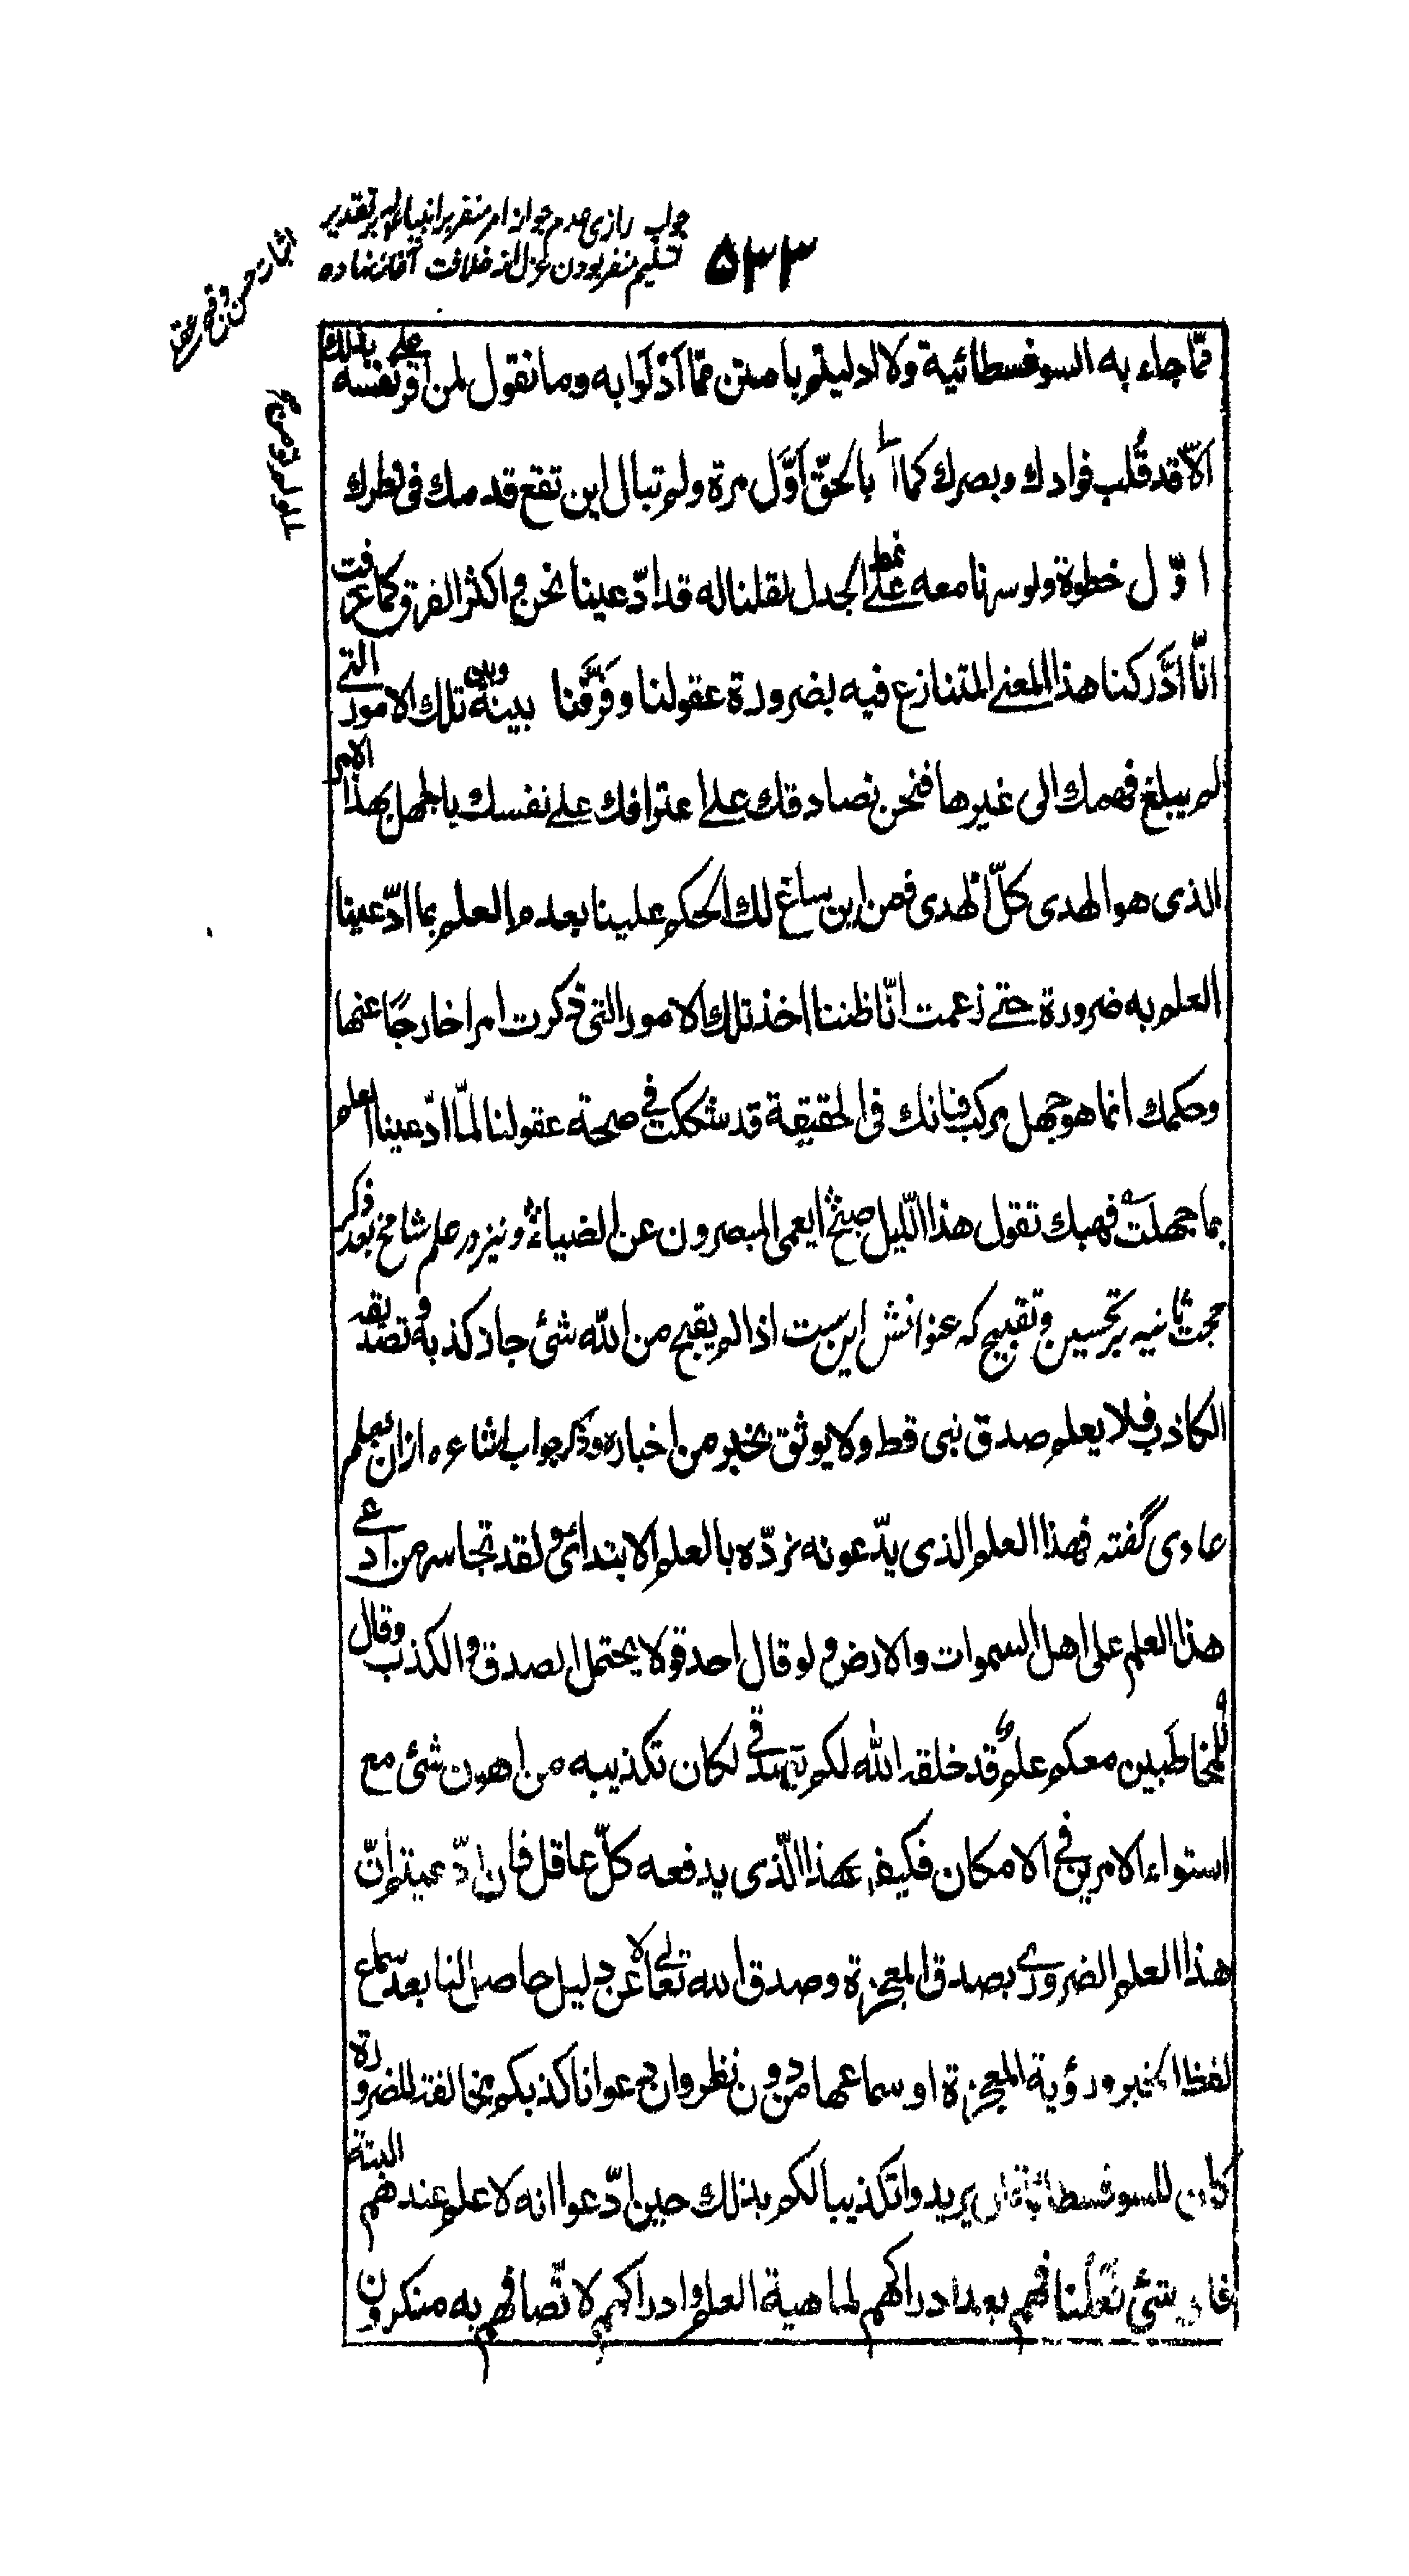 جواب رازی عدم جواز امر منفر بر انبیا و بر تقدیر
تسلیم منفر بودن عزل از خلافت آغاز نهاده
۵۳۳
اثبات حسن و قبح عقلی
ممّا جاء به السوفسطائية ولا ادليتم بامتن ممّا ادلوا به وما نقول لمن اقرّ على نفسه بانك
الّا قد قُلب فوادك وبصرك كما بالحقّ اوّل مرة ولم تبال اين تقع قدمك فى نظرك
اوّل خطوة ولو سرنا معه على نمط الجدل لقلنا له قد ادّعينا نحن و اكثر الفرق كما عرفت
انّا ادّركنا هذا المعنى المتنازع فيه بضرورة عقولنا وفرّقنا بينه وبين تلك الامور التى
لم يبلغ فهمك الى غيرها فنحن نصادقك على اعترافك على نفسك بالجهل بهذا الامر
الذى هو الهدى كلّ الهدى فمن اين ساغ لك الحكم علينا بعدم العلم بما ادّعينا
العلم به ضرورة حتى زعمت انّا ظننا اخذ تلك الامور التى ذكرت امرا خارجًا عنها
وحكمك انما هو جهل مركب فانك فى الحقيقة قد شككت فى صحة عقولنا لمّا ادّعينا العلم
بما جهلت فهبك تقول هذا اللّيل صبح ايعمى المبصرون عن الضياء و نيز در علم شامخ بعد ذكر
حجت ثانيه بر تحسين و تقبيح كه عنوانش اين ست اذا لم يقبح من الله شئ جاز كذبه و تصديقه
الكاذب فلا يعلم صدق نبى قط ولا يوثق بخبر من اخباره و ذكر جواب اشاعره ازان بعلم
عادى گفته فهذا العلم الذى يدّعونه نردّه بالعلم الابتدائى و لقد تجاسر من ادّعى
هذا العلم على اهل السموات والارض و لو قال احد قولا يحتمل الصدق و الكذب وقال
للمخاطبين معكم علم قد خلقه الله لكم بصدقى لكان تكذيبه من اهون شئ مع
استواء الامرين فى الامكان فكيف بهذا الّذى يدفعه كلّ عاقل فان ادّعيتم انّ
هذا العلم الضرورى بصدق المعجزة وصدق الله تعالى لا عن دليل حاصل لنا بعد سماع
لفظ الخبر ورؤية المعجزة او سماعها من دون نظر وان دعوانا كذبكم بمخالفته للضرورة
كان للسوفسطائية ان يريدوا تكذيبا لكم بذلك حين ادّعوا انه لا علم عندهم البتة
فان شئ نعلنا فهم بعد ادراكهم لماهية العلم و ادراكهم لاتّصافهم به منكرون